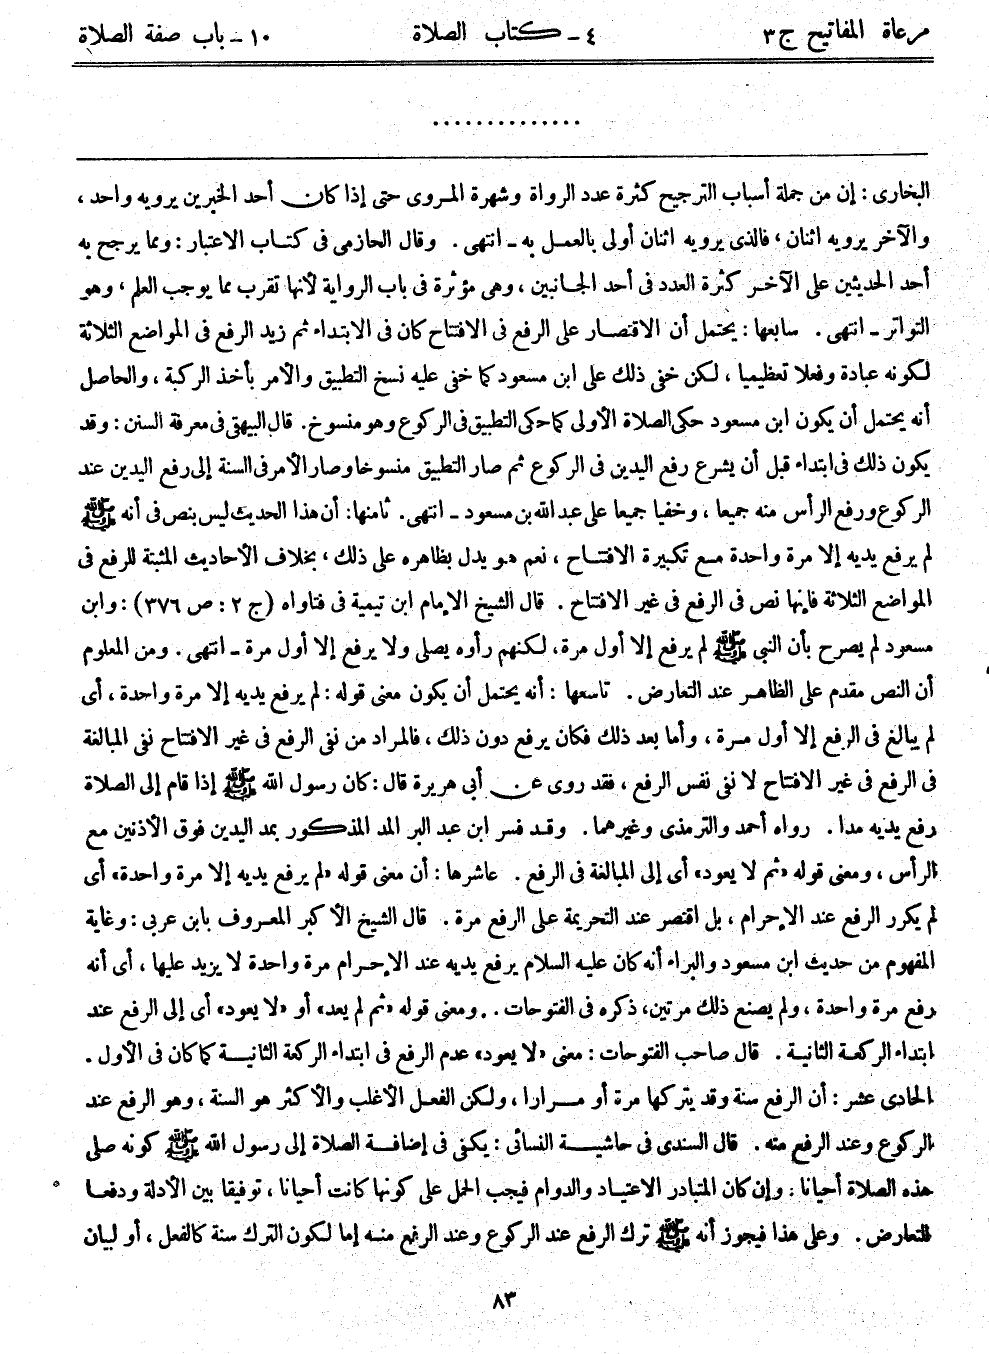 مرعاة المفاتيح ج ٣ ٤ - كتاب الصلاة ١٠ - باب صفة الصلاة
..............
البخارى : إن من جملة أسباب الترجيح كثرة عدد الرواة وشهرة المروى حتى إذا كان أحد الخبرين يرويه واحد ،
والآخر يرويه اثنان ، فالذى يرويه اثنان أولى بالعمل به - انتهى . وقال الحازمى فى كتاب الاعتبار : ومما يرجح به
أحد الحديثين على الآخر كثرة العدد فى أحد الجانبين ، وهى مؤثرة فى باب الرواية لأنها تقرب مما يوجب العلم ، وهو
التواتر - انتهى . سابعها : يحتمل أن الاقتصار على الرفع فى الافتتاح كان فى الابتداء ثم زيد الرفع فى المواضع الثلاثة
لكونه عبادة وفعلا تعظيميا ، لكن خفى ذلك على ابن مسعود كما خفى عليه نسخ التطبيق والأمر بأخذ الركبة ، والحاصل
أنه يحتمل أن يكون ابن مسعود حكى الصلاة الأولى كما حكى التطبيق فى الركوع وهو منسوخ . قال البيهقى فى معرفة السنن : وقد
يكون ذلك فى ابتداء قبل أن يشرع رفع اليدين فى الركوع ثم صار التطبيق منسوخا وصار الأمر فى السنة إلى رفع اليدين عند
الركوع ورفع الرأس منه جميعا ، وخفيا جميعا على عبد الله بن مسعود - انتهى . ثامنها : أن هذا الحديث ليس بنص فى أنه ﷺ
لم يرفع يديه إلا مرة واحدة مع تكبيرة الافتتاح ، نعم هو يدل بظاهره على ذلك ، بخلاف الأحاديث المثبتة للرفع فى
المواضع الثلاثة فإنها نص فى الرفع فى غير الافتتاح . قال الشيخ الإمام ابن تيمية فى فتاواه (ج ٢ : ص ٣٧٦) : وابن
مسعود لم يصرح بأن النبى ﷺ لم يرفع إلا أول مرة ، لكنهم رأوه يصلى ولا يرفع إلا أول مرة - انتهى . ومن المعلوم
أن النص مقدم على الظاهر عند التعارض . تاسعها : أنه يحتمل أن يكون معنى قوله : لم يرفع يديه إلا مرة واحدة ، أى
لم يبالغ فى الرفع إلا أول مرة ، وأما بعد ذلك فكان يرفع دون ذلك ، فالمراد من نفى الرفع فى غير الافتتاح نفى المبالغة
فى الرفع فى غير الافتتاح لا نفى نفس الرفع ، فقد روى عن أبى هريرة قال : كان رسول الله ﷺ إذا قام إلى الصلاة
رفع يديه مدا . رواه أحمد والترمذى وغيرهما . وقد فسر ابن عبد البر المد المذكور بمد اليدين فوق الأذنين مع
الرأس ، ومعنى قوله «ثم لا يعود» أى إلى المبالغة فى الرفع . عاشرها : أن معنى قوله «لم يرفع يديه إلا مرة واحدة» أى
لم يكرر الرفع عند الإحرام ، بل اقتصر عند التحريمة على الرفع مرة . قال الشيخ الأكبر المعروف بابن عربى : وغاية
المفهوم من حديث ابن مسعود والبراء أنه كان عليه السلام يرفع يديه عند الإحرام مرة واحدة لا يزيد عليها ، أى أنه
رفع مرة واحدة ، ولم يصنع ذلك مرتين ، ذكره فى الفتوحات . . ومعنى قوله «ثم لم يعد» أو «لا يعود» أى إلى الرفع عند
ابتداء الركعة الثانية . قال صاحب الفتوحات : معنى «لا يعود» عدم الرفع فى ابتداء الركعة الثانية كما كان فى الأول .
الحادى عشر : أن الرفع سنة وقد يتركها مرة أو مرارا ، ولكن الفعل الأغلب والأكثر هو السنة ، وهو الرفع عند
الركوع وعند الرفع منه . قال السندى فى حاشية النسائى : يكفى فى إضافة الصلاة إلى رسول الله ﷺ كونه صلى
هذه الصلاة أحيانا : وإن كان المتبادر الاعتياد والدوام فيجب الحمل على كونها كانت أحيانا ، توفيقا بين الأدلة ودفعا
للتعارض . وعلى هذا فيجوز أنه ﷺ ترك الرفع عند الركوع وعند الرفع منه إما لكون الترك سنة كالفعل ، أو لبيان
٨٣